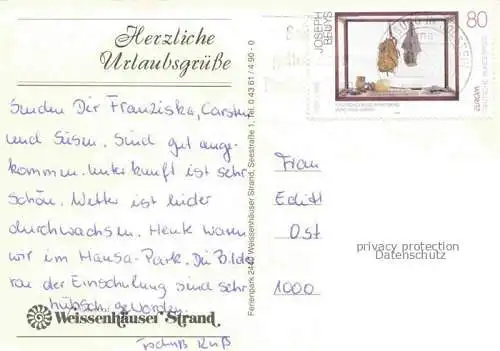 Herzliche
Urlaubsgrüße
Senden Dir Franziska, Carsten
und Susen. Sind gut ange-
kommen. Unterkunft ist sehr
schön. Wetter ist leider
durchwachsen. Heute waren
wir im Hansa-Park. Die Bilder
von der Einschulung sind sehr
hübsch geworden.
Tschüß Kuß
Weissenhäuser Strand
Ferienpark 2440 Weissenhäuser Strand, Seestraße 1, Tel. 0 43 61 / 4 90 - 0
JOSEPH
BEUYS
80
DEUTSCHE BUNDESPOST
EUROPA
Frau
Edith
Ost
1000
privacy protection
Datenschutz